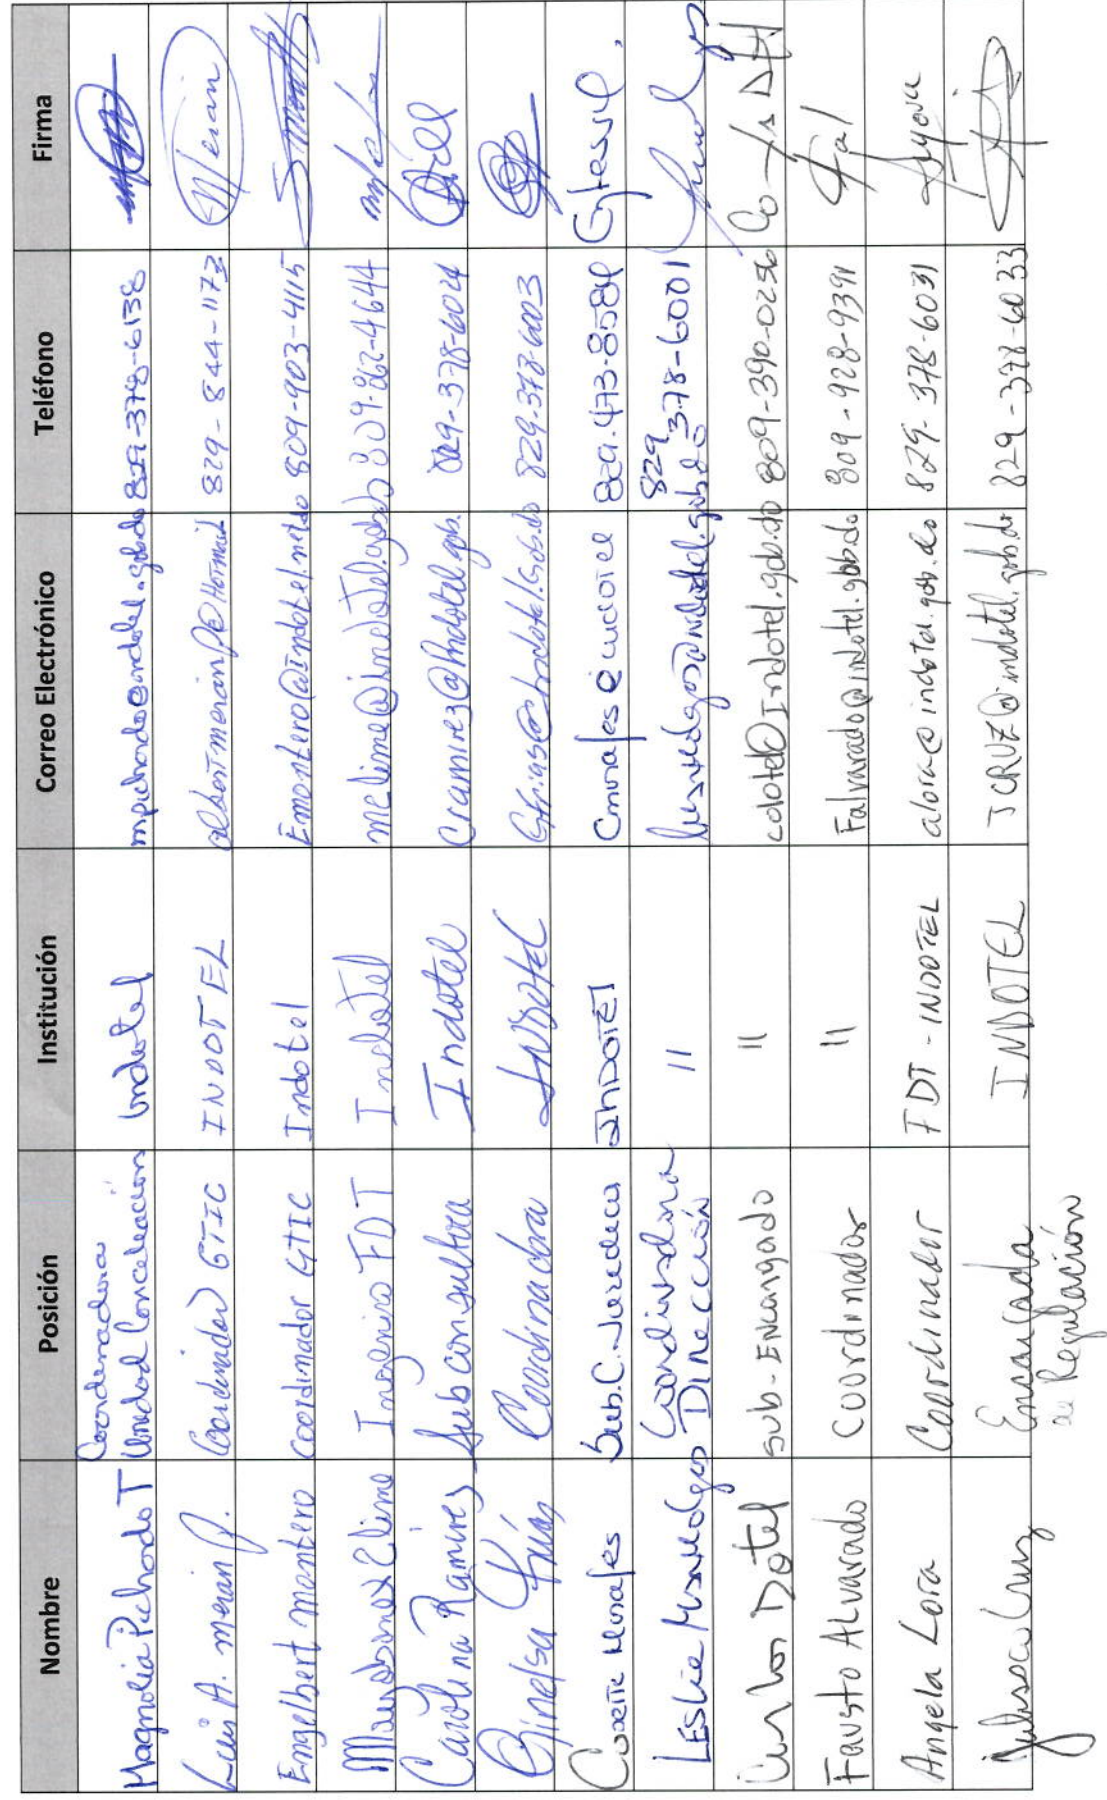 Nombre Posición Institución Correo Electrónico Teléfono Firma
Magnolia Pichardo T Coordinadora Unidad Conciliación Indotel mpichardo@indotel.gob.do 829-378-6138
Luis A. Merán P. Coordinador GTIC INDOTEL albertmeranp@Hotmail 829-844-1173 Merán
Engelbert Montero Coordinador GTIC Indotel Emontero@indotel.net.do 809-903-4115
Elime FDT Indotel melime@indotel.gob.do 809-862-4644
Carolina Ramirez Subconsultora Indotel Cramirez@Indotel.gob. 829-378-6024
Ginelsa Frías Coordinadora Indotel Gfrias@Indotel.gob.do 829-378-6003
Cosette Morales Sub.C. Juridica INDOTEL Cmorales@indotel 829.473.8584
Leslie Coordinadora Dirección 11 829-378-6001
Carlos Dotel Sub-Encargado 11 cdotel@Indotel.gob.do 809-390-0256
Fausto Alvarado Coordinador 11 Falvarado@indotel.gob.do 809-928-9391 Fal
Angela Lora Coordinador FDT - INDOTEL alora@indotel.gob.do 829-378-6031
Cruz Encargada de Regulación INDOTEL JCRUZ@indotel.gob.do 829-378-6033